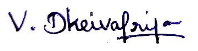 V. Dheivapriya